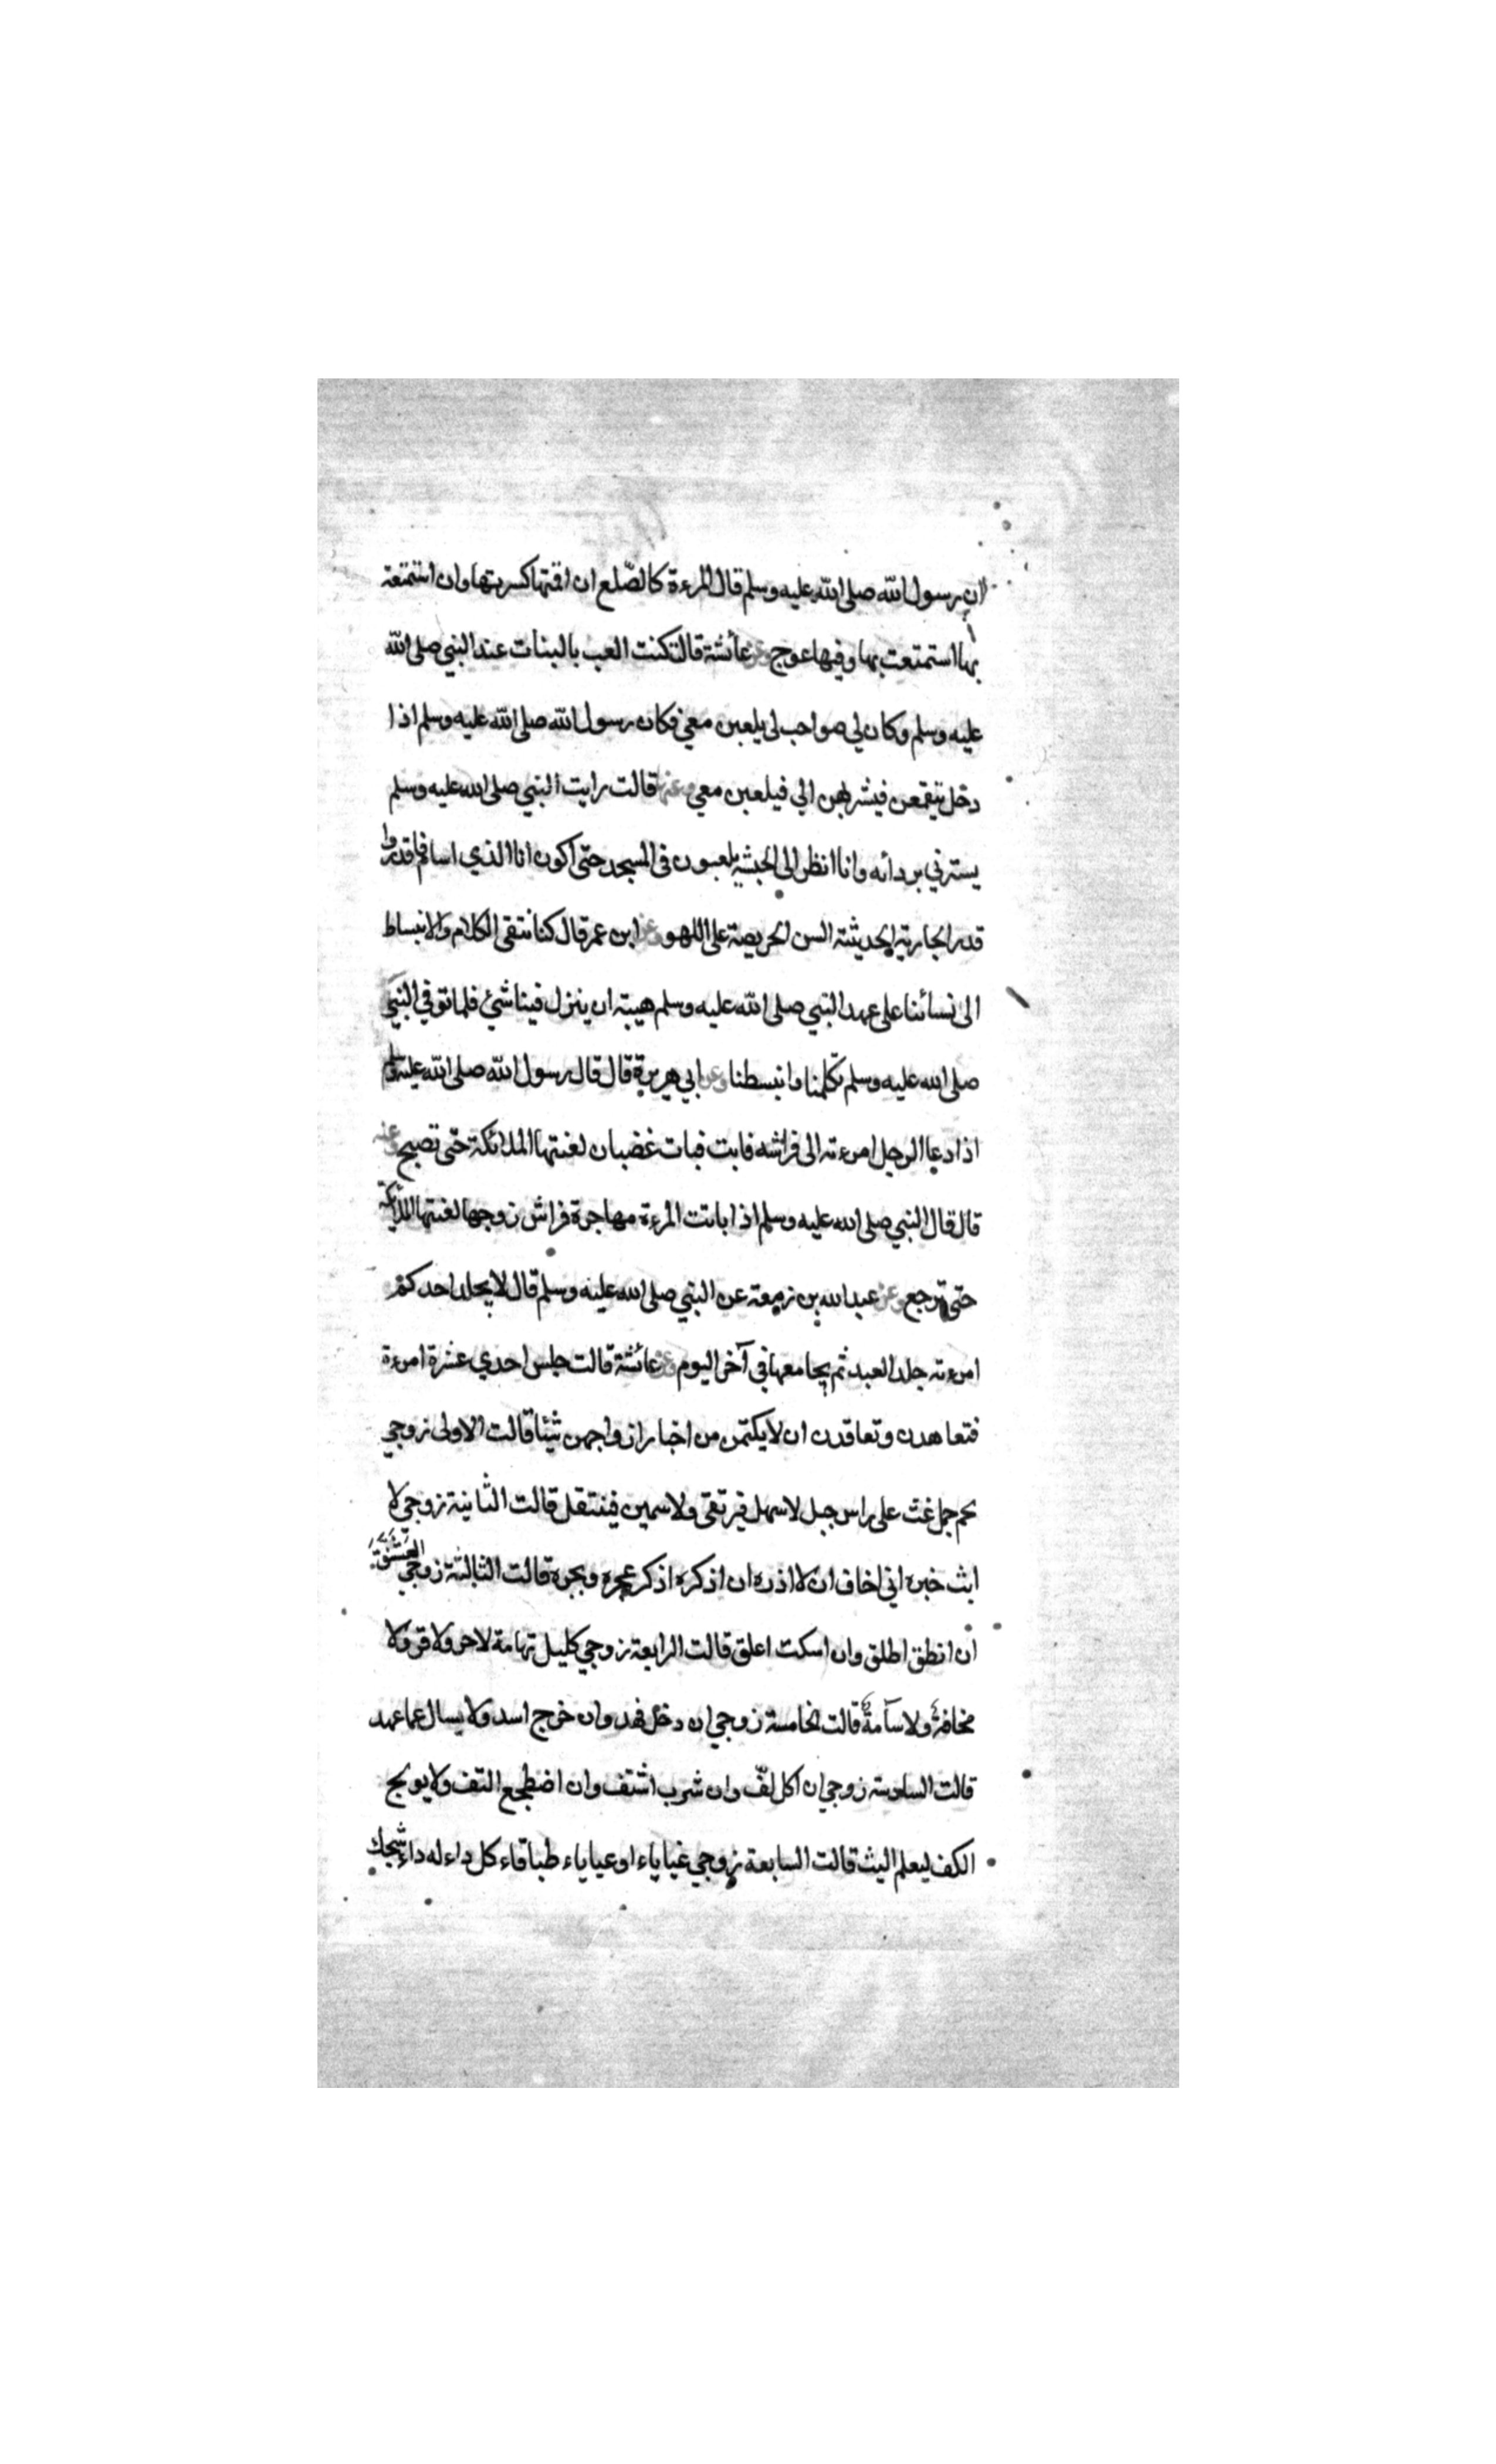 ان رسول الله صلى الله عليه وسلم قال المرءة كالضلع ان اقمتها كسرتها وان استمتعت
بها استمتعت بها وفيها عوج وعن عائشة قالت كنت العب بالبنات عند النبي صلى الله
عليه وسلم وكان لي صواحب لى يلعبن معي فكان رسول الله صلى الله عليه وسلم اذا
دخل يتقمعن فيسربهن الي فيلعبن معي وعنها قالت رايت النبي صلى الله عليه وسلم
يسترني بردائه وانا انظر الى الحبشة يلعبون في المسجد حتى اكون انا الذي اسام فاقدروا
قدر الجارية الحديثة السن الحريصة على اللهو وعن ابن عمر قال كنا نتقى الكلام والانبساط
الى نسائنا على عهد النبي صلى الله عليه وسلم هيبة ان ينزل فينا شئ فلما توفي النبي
صلى الله عليه وسلم تكلمنا وانبسطنا وعن ابي هريرة قال قال رسول الله صلى الله عليه وسلم
اذا دعا الرجل امرءته الى فراشه فابت فبات غضبان لعنتها الملائكة حتى تصبح وعنه
قال قال النبي صلى الله عليه وسلم اذا باتت المرءة مهاجرة فراش زوجها لعنتها الملائكة
حتى ترجع وعن عبد الله بن زمعة عن النبي صلى الله عليه وسلم قال لا يجلد احدكم
امرءته جلد العبد ثم يجامعها في آخر اليوم وعن عائشة قالت جلس احدي عشرة امرءة
فتعاهدن وتعاقدن ان لا يكتمن من اخبار ازواجهن شيئا قالت الاولى زوجي
لحم جمل غث على راس جبل لا سهل فيرتقى ولا سمين فينتقل قالت الثانية زوجي لا
ابث خبره اني اخاف ان لا اذره ان اذكره اذكر عجره وبجره قالت الثالثة زوجي العشنق
ان انطق اطلق وان اسكت اعلق قالت الرابعة زوجي كليل تهامة لا حر ولا قر ولا
مخافة ولا سآمة قالت الخامسة زوجي ان دخل فهد وان خرج اسد ولا يسال عما عهد
قالت السادسة زوجي ان اكل لفّ وان شرب اشتف وان اضطجع التف ولا يولج
الكف ليعلم البث قالت السابعة زوجي غياياء او عياياء طباقاء كل داء له داء شجك